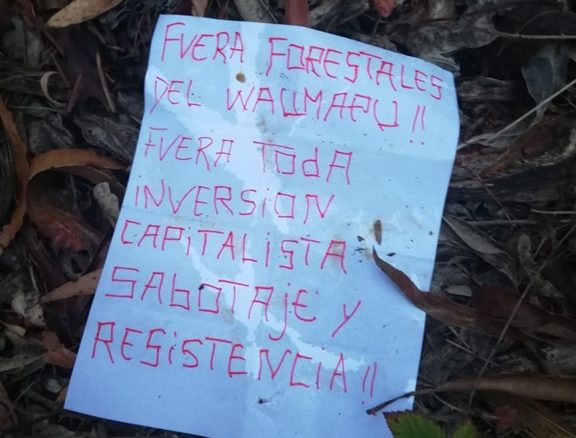 FUERA FORESTALES
DEL WALLMAPU!!
FUERA TOdA
iNVERSiON
CAPiTALiSTA
SAbOTAjE y
RESiSTENCiA!!